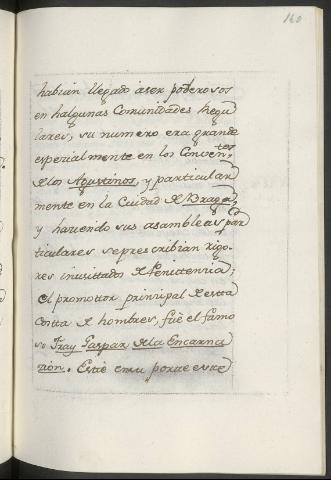 160
habian llegado â ser poderosos
en halgunas Comunidades Regu
lares, su numero era grande
espezialmente en los Conven.tos
de los Agustinos, y particular
mente en la Ciudad de Braga,
y haviendo sus asambleas par
ticulares se prescribian rigo-
res inusittados de Penittenzia;
el promottor prinzipal de esta
Contta de hombres, fuê el famo
so Fray Gaspar de la Encarna
zion. Estte en su